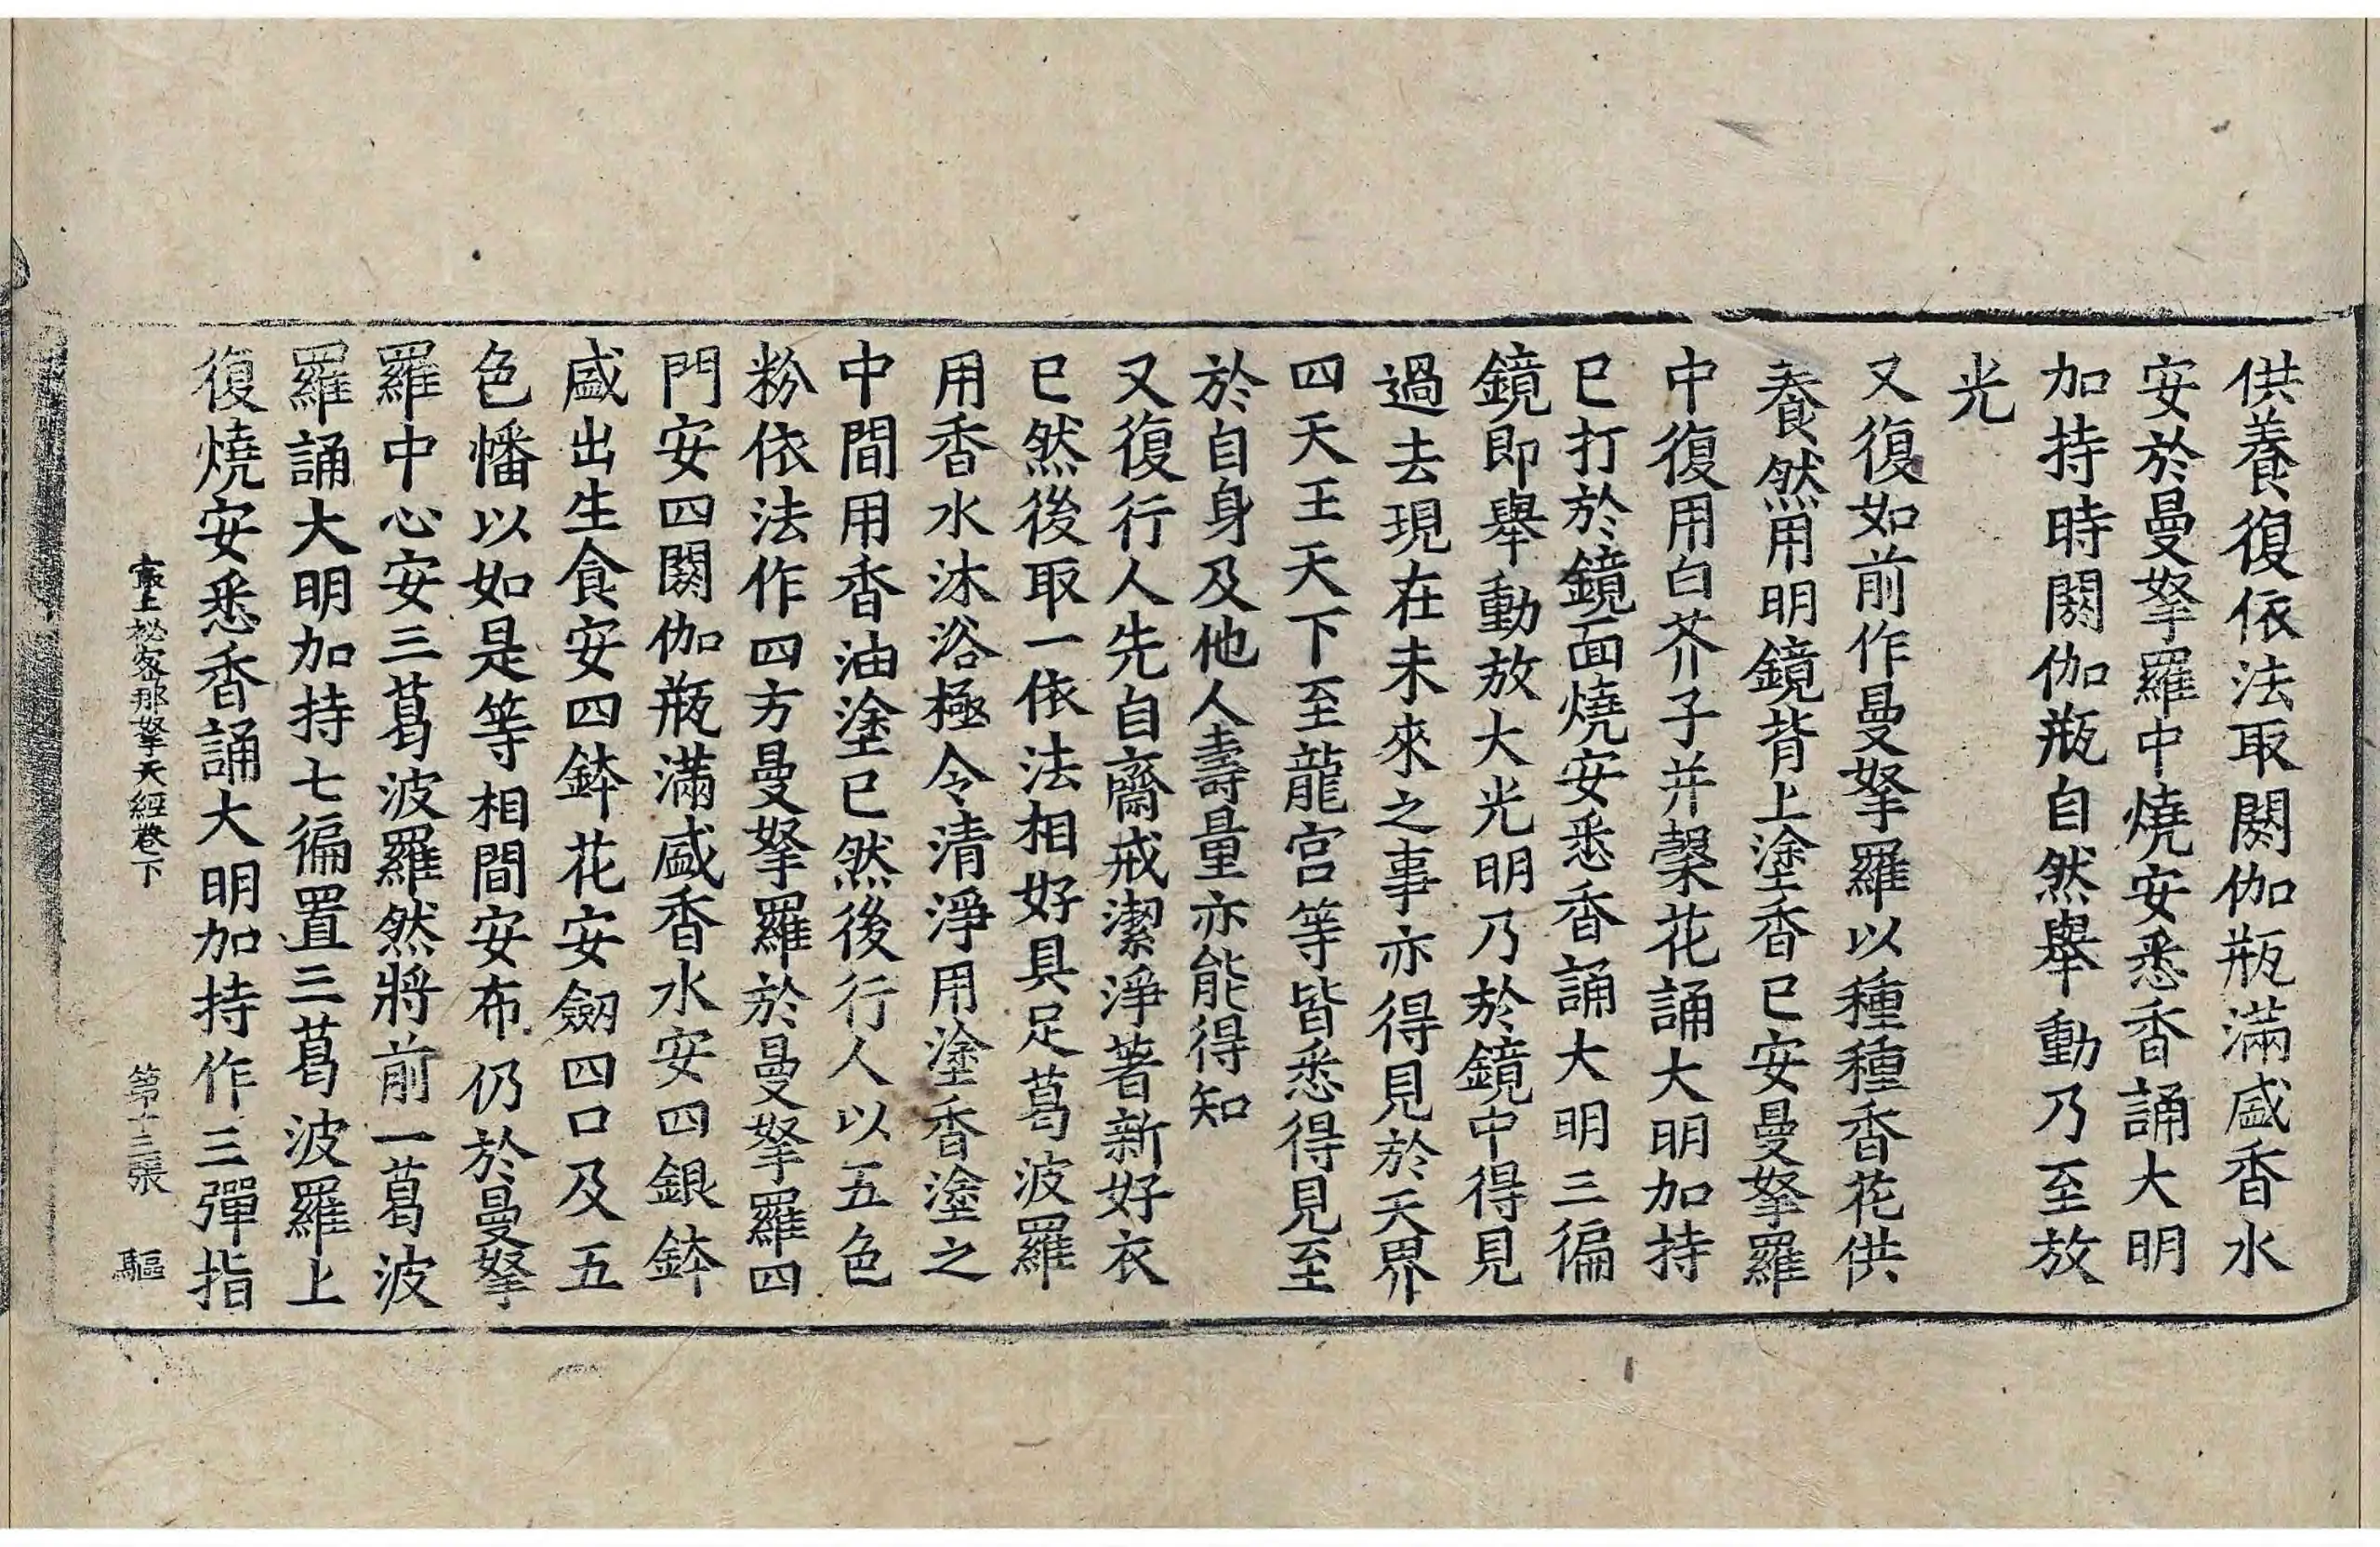 供養復依法取閼伽瓶滿盛香水
安於曼拏羅中燒安悉香誦大明
加持時閼伽瓶自然舉動乃至放
光
又復如前作曼拏羅以種種香花供
養然用明鏡背上塗香已安曼拏羅
中復用白芥子并櫱花誦大明加持
已打於鏡面燒安悉香誦大明三徧
鏡即舉動放大光明乃於鏡中得見
過去現在未來之事亦得見於天界
四天王天下至龍宮等皆悉得見至
於自身及他人壽量亦能得知
又復行人先自齋戒潔淨著新好衣
已然後取一依法相好具足葛波羅
用香水沐浴極令清淨用塗香塗之
中間用香油塗已然後行人以五色
粉依法作四方曼拏羅於曼拏羅四
門安四閼伽瓶滿盛香水安四銀鉢
盛出生食安四鉢花安劒四口及五
色幡以如是等相間安布仍於曼拏
羅中心安三葛波羅然將前一葛波
羅誦大明加持七徧置三葛波羅上
復燒安悉香誦大明加持作三彈指
最上祕密那拏天經卷下 第十三張 驅